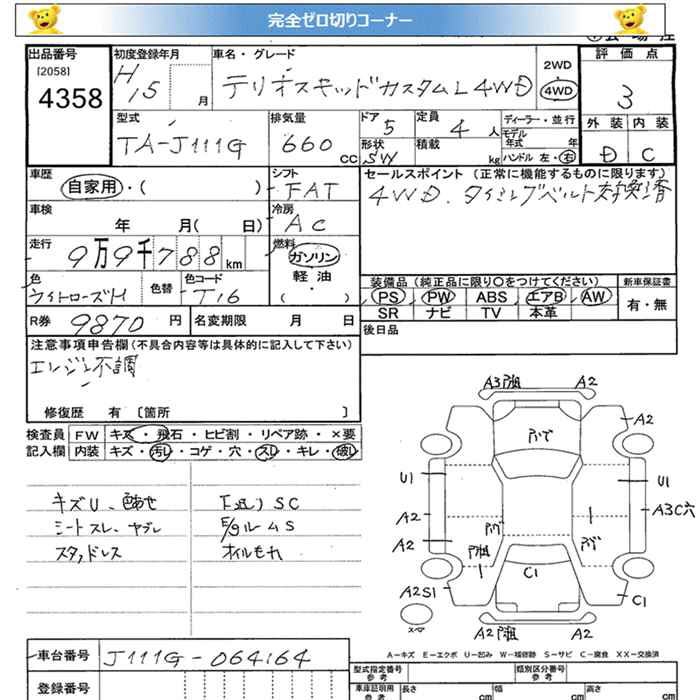 完全ゼロ切りコーナー
出品番号 初度登録年月 車名・グレード 評価点
[2058] H15 月 テリオスキッドカスタムL 4WD 2WD 4WD 3
4358
型式 排気量 ドア 定員 ディーラー・並行 外装 内装
TA-J111G 660 CC 5 4 人 モデル年式 年 D C
形状 SW 積載 kg ハンドル 左・右
車歴 シフト セールスポイント (正常に機能するものに限ります)
自家用・( ) FAT 4WD、タイミングベルト交換済
車検 冷房
年 月( 日) AC
走行 燃料
9万9千788km ガソリン
軽油
( ・ )
色 色替 色コード 装備品 (純正品に限り〇をつけてください) 新車保証書
ライトローズM T16 PS PW ABS エアB AW 有・無
SR ナビ TV 本革
R券 9870円 名変期限 月 日 後日品
注意事項申告欄(不具合内容等は具体的に記入して下さい)
エンジン不調
修復歴 有 [箇所 ]
検査員 FW キズ・飛石・ヒビ割・リペア跡・×要
記入欄 内装 キズ・汚レ・コゲ・穴・スレ・キレ・破レ
キズU、色あせ 下廻りSC
シートスレ、ヤブレ E/gルームS
スタッドレス オイルもれ
A2
A2
U1 U1
A2 A3C穴
A2
C1
A2S1 C1
スペア
A2
A-キズ E-エクボ U-凹み W-補修跡 S-サビ C-腐食 XX-交換済
車台番号 J111G-064164
型式指定番号 参考 類別区分番号 参考
登録番号 車庫証明用 参考 長さ cm 幅 cm 高さ cm